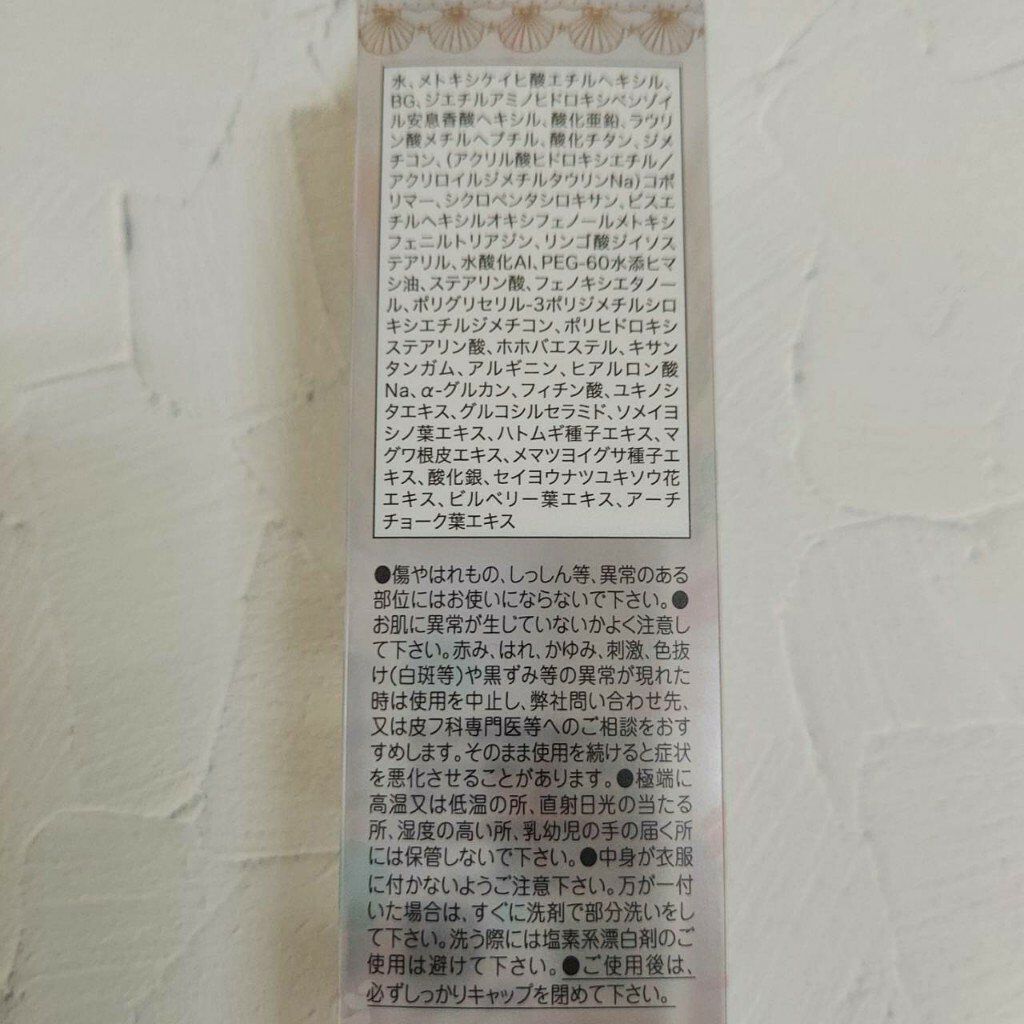 水、メトキシケイヒ酸エチルヘキシル、
BG、ジエチルアミノヒドロキシベンゾイ
ル安息香酸ヘキシル、酸化亜鉛、ラウリ
ン酸メチルヘプチル、酸化チタン、ジメ
チコン、(アクリル酸ヒドロキシエチル/
アクリロイルジメチルタウリンNa)コポ
リマー、シクロペンタシロキサン、ビスエ
チルヘキシルオキシフェノールメトキシ
フェニルトリアジン、リンゴ酸ジイソス
テアリル、水酸化Al、PEG-60水添ヒマ
シ油、ステアリン酸、フェノキシエタノー
ル、ポリグリセリル-3ポリジメチルシロ
キシエチルジメチコン、ポリヒドロキシ
ステアリン酸、ホホバエステル、キサン
タンガム、アルギニン、ヒアルロン酸
Na、α-グルカン、フィチン酸、ユキノシ
タエキス、グルコシルセラミド、ソメイヨ
シノ葉エキス、ハトムギ種子エキス、マ
グワ根皮エキス、メマツヨイグサ種子エ
キス、酸化銀、セイヨウナツユキソウ花
エキス、ビルベリー葉エキス、アーチ
チョーク葉エキス
●傷やはれもの、しっしん等、異常のある
部位にはお使いにならないで下さい。●
お肌に異常が生じていないかよく注意し
て下さい。赤み、はれ、かゆみ、刺激、色抜
け(白斑等)や黒ずみ等の異常が現れた
時は使用を中止し、弊社問い合わせ先、
又は皮フ科専門医等へのご相談をおす
すめします。そのまま使用を続けると症状
を悪化させることがあります。●極端に
高温又は低温の所、直射日光の当たる
所、湿度の高い所、乳幼児の手の届く所
には保管しないで下さい。●中身が衣服
に付かないようご注意下さい。万が一付
いた場合は、すぐに洗剤で部分洗いをし
て下さい。洗う際には塩素系漂白剤のご
使用は避けて下さい。●ご使用後は、
必ずしっかりキャップを閉めて下さい。